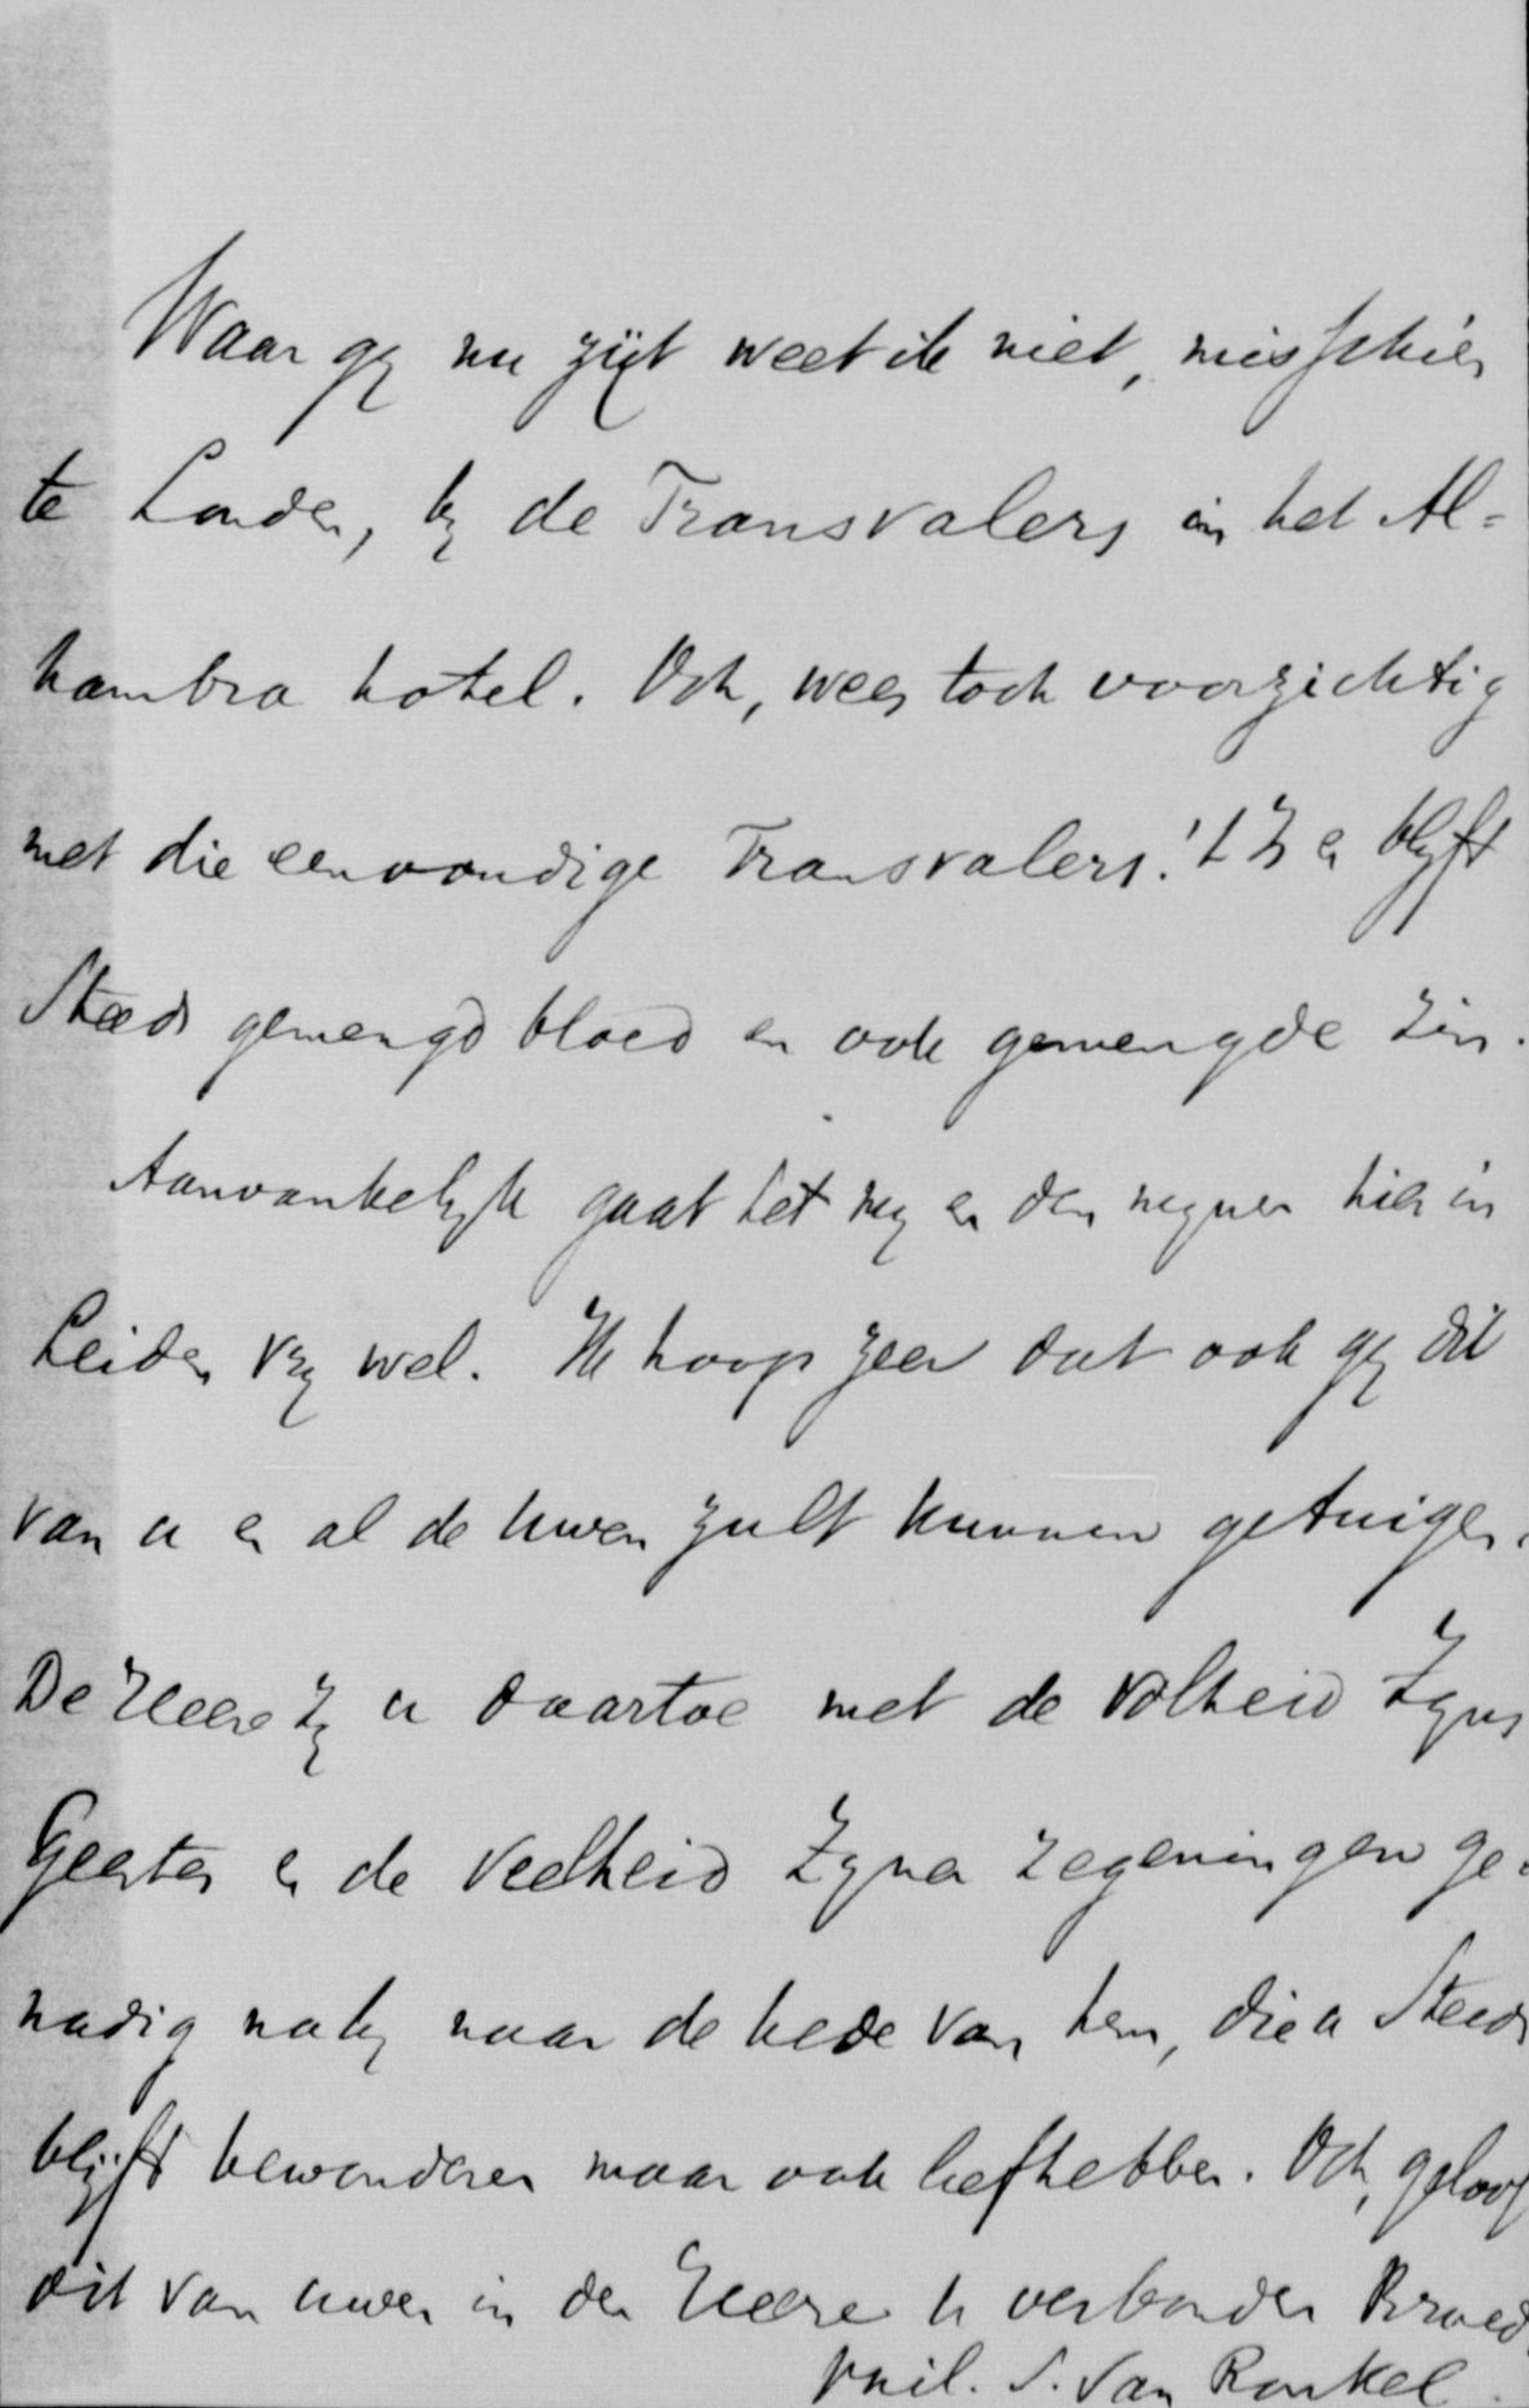 Waar gij nu zijt weet ik niet, misschien
te Londen, bij de Transvalers in het Al=
hambra hotel. Och, wees toch voorzichtig
met die eenvoudige Transvalers! 't Is en blijft
Steeds gemengd bloed en ook gemengde zin.
Aanvankelijk gaat het mij en den mijnen hier in
Leiden vrij wel. Ik hoop zeer dat ook gij dit
van u en al de uwen zult kunnen getuigen.
De Heere zij u daartoe met de volheid Zijns
Geestes en de veelheid Zijner zegeningen ge=
nadig nabij naar de bede van hem, die u Steeds
blijft bewonderen maar ook liefhebben. Och, geloof
dit van uwen in den Heere u verbonden Broed
Phil. S. van Ronkel